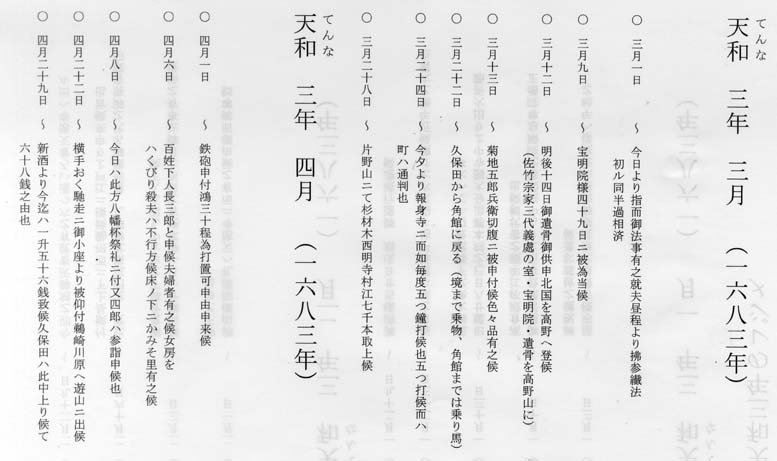 てんな
天和　三年　三月　（一六八三年）
○　三月一日　～　今日より指而御法事有之就夫昼程より拂参纎法
初ル同半過相済
○　三月九日　～　宝明院様四十九日ニ被為当候
○　三月十二日　～　明後十四日御遺骨御供申北国を高野へ登候
（佐竹宗家三代義處の室・宝明院・遺骨を高野山に）
○　三月十三日　～　菊地五郎兵衛切腹ニ被申付候色々品有之候
○　三月二十二日　～　久保田から角館に戻る（境まで乗物、角館までは乗り馬）
○　三月二十四日　～　今夕より報身寺ニ而如毎度五つ鐘打候也五つ打候而ハ
町ハ通判也
○　三月二十八日　～　片野山ニて杉材木西明寺村江七千本取上候
てんな
天和　三年　四月　（一六八三年）
○　四月一日　～　鉄砲申付鴻三十程為打置可申由申来候
○　四月六日　～　百姓下人長三郎と申候夫婦者有之候女房を
ハくびり殺夫ハ不行方候床ノ下ニかみそ里有之候
○　四月八日　～　今日ハ此方八幡杯祭礼ニ付又四郎ハ参詣申候也
○　四月二十二日　～　横手おく馳走ニ御小座より被仰付鵜崎川原へ遊山ニ出候
○　四月二十九日　～　新酒より今迄ハ一升五十六銭致候久保田ハ此中上り候て
六十八銭之由也